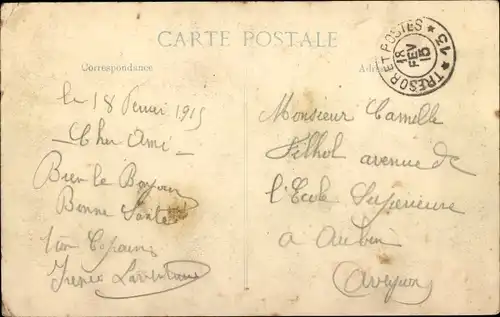 CARTE POSTALE
Correspondance
TRESOR ET POSTES * 15 *
18
FEV
15
le 18 Fevrier 1915
- Cher Ami -
Bien le Bonjour
Bonne Santé
ton Copain
Monsieur Camille
Filhol avenue de
l'Ecole Superieure
a Aubin
Aveyron